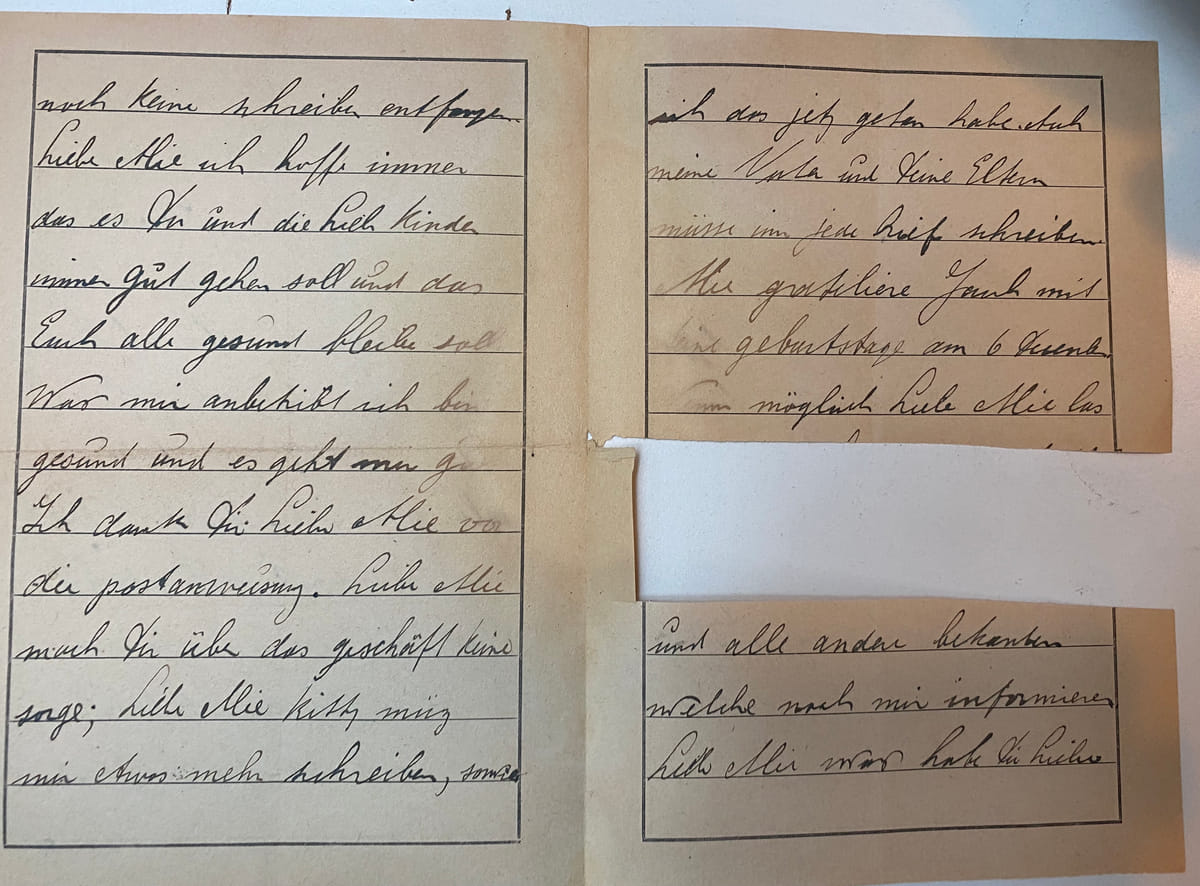 noch keine schreiben entfangen
Liebe Mie ich hoffe immer
das es Dir und die Lieb Kinder
immer gut gehen soll und das
Euch alle gesund bleibe soll
Was mir anbetribt ich bin
gesund und es geht mir
Ich dank Dir Liebe Mie vor
die postanweisung. Liebe Mie
mach Dir über das geschäft keine
sorge; Liebe Mie Kitty müz
mir etwas mehr schreiben, sowie
ich das jetz getan habe. Auch
meine Vater und Deine Eltern
müsse inn jede brief schreiben.
Mie gratiliere Jauch mit
Deine geburtstage am 6
möglich Liebe Mie las
und alle andere bekanten
welche noch mir informieren
Liebe Mie was habe Die Liebe